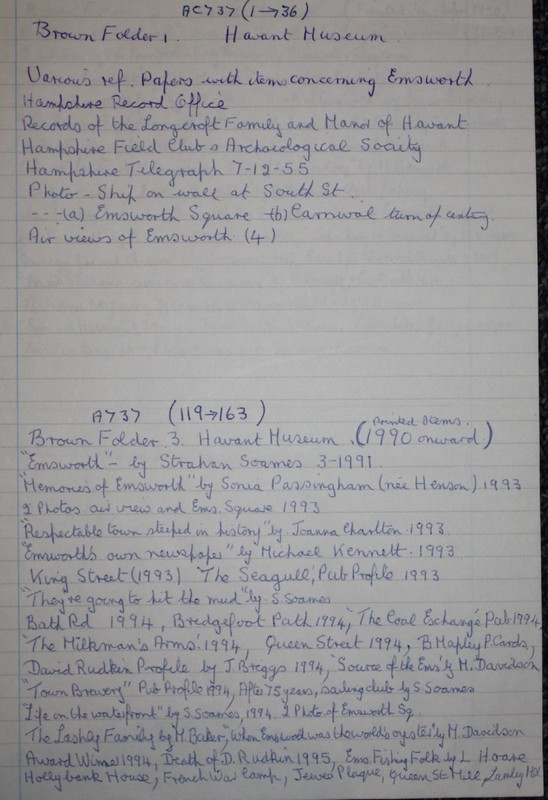 AC737 (1→36)
Brown Folder 1. Havant Museum.
Various ref. Papers with items concerning Emsworth
Hampshire Record Office
Records of the Longcroft Family and Manor of Havant
Hampshire Field Club & Archaeological Society
Hampshire Telegraph 7-12-55
Photo - Ship on wall at South St.
- - - (a) Emsworth Square - (b) Carnival turn of century.
Air views of Emsworth (4)
A737 (119→163)
Printed Items.
Brown Folder 3. Havant Museum. (1990 onward)
"Emsworth" - by Strahan Soames 3-1991.
"Memories of Emsworth" by Sonia Passingham (née Henson) 1993
2 Photos air view and Ems. Square 1993
"Respectable town steeped in history" by Joanna Charlton. 1993.
"Emsworth's own newspaper" by Michael Kennett. 1993
King Street (1993) 'The Seagull,' Pub Profile 1993
"They're going to hit the mud" by S. Soames
Bath Rd 1994, Bridgefoot Path 1994, 'The Coal Exchange' Pub 1994
'The Milkman's Arms' 1994, Queen Street 1994, B Mapley P. Cards,
David Rudkin Profile by J. Breggs 1994, 'Source of the Ems' by M. Davidson
"Town Brewery" Pub Profile 1994, After 75 years, sailing club by S. Soames
"Life on the waterfront" by S. Soames, 1994. 2 Photo of Emsworth Sq.
The Lashly Family by M. Baker, When Emswod was the world's oyster by M. Davidson
Award Wine 1994, Death of D. Rudkin 1995, Ems. Fishing Folk by L Hoare
Hollybank House, French War Camp, Jewes Plaque, Queen St Mill, Lumley Mill